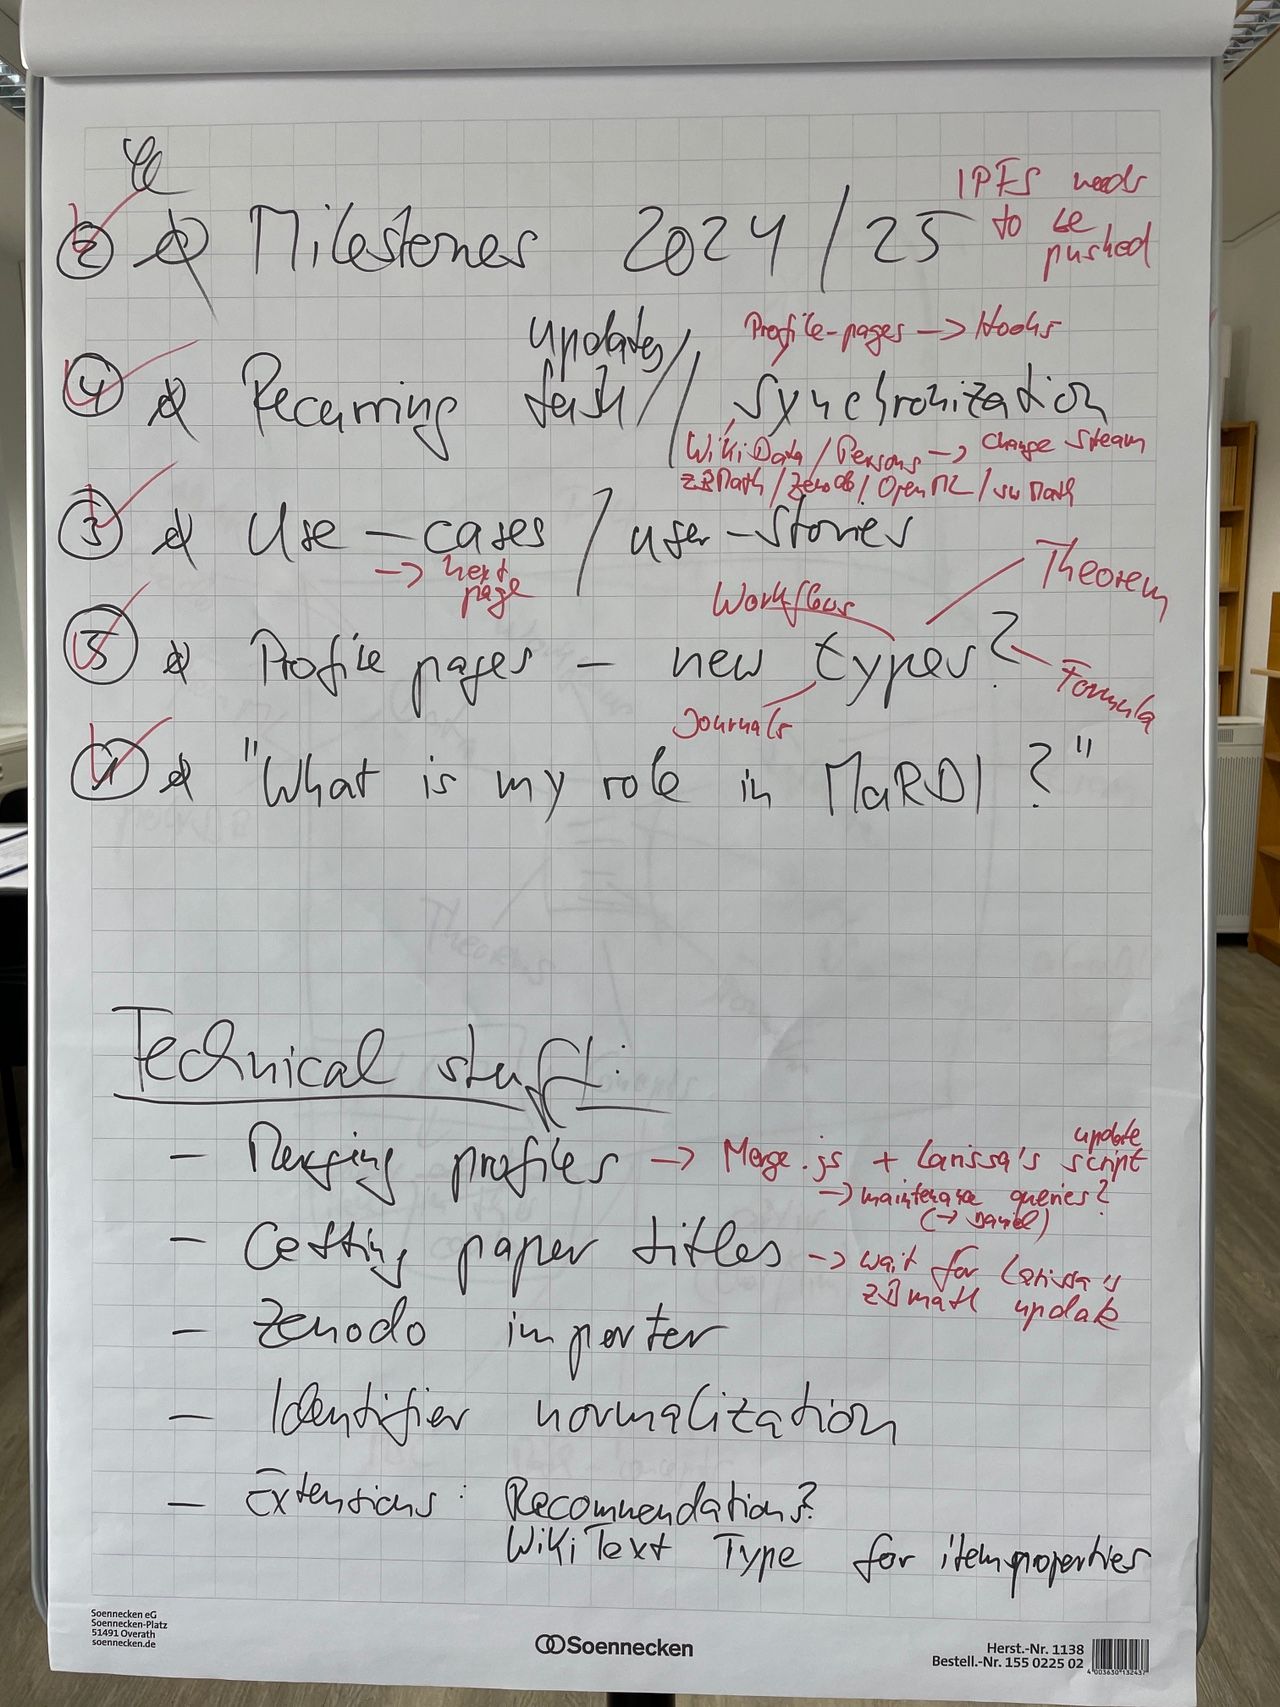 IPFS needs
to be
pushed
② Milestones 2024/25
updates/
Profile-pages -> Hooks
④ Recurring tasks // Synchronization
WikiData / Persons -> change stream
zBMath / Zenodo / OpenML / swMath
③ Use-cases / user-stories
-> next
page
Workflows
Theorem
⑤ Profile pages - new types?
Formula
Journals
① "What is my role in MaRDI?"
Technical stuff:
- Merging profiles -> Merge.js + Larissa's update script
-> maintenance queries?
(-> Daniel)
- Getting paper titles -> wait for Larissa's
zBmath update
- Zenodo importer
- Identifier normalization
- Extensions: Recommendations?
WikiText Type for itemproperties
Soennecken eG
Soennecken-Platz
51491 Overath
soennecken.de
Soennecken
Herst.-Nr. 1138
Bestell.-Nr. 155 0225 02
4 003630 132437